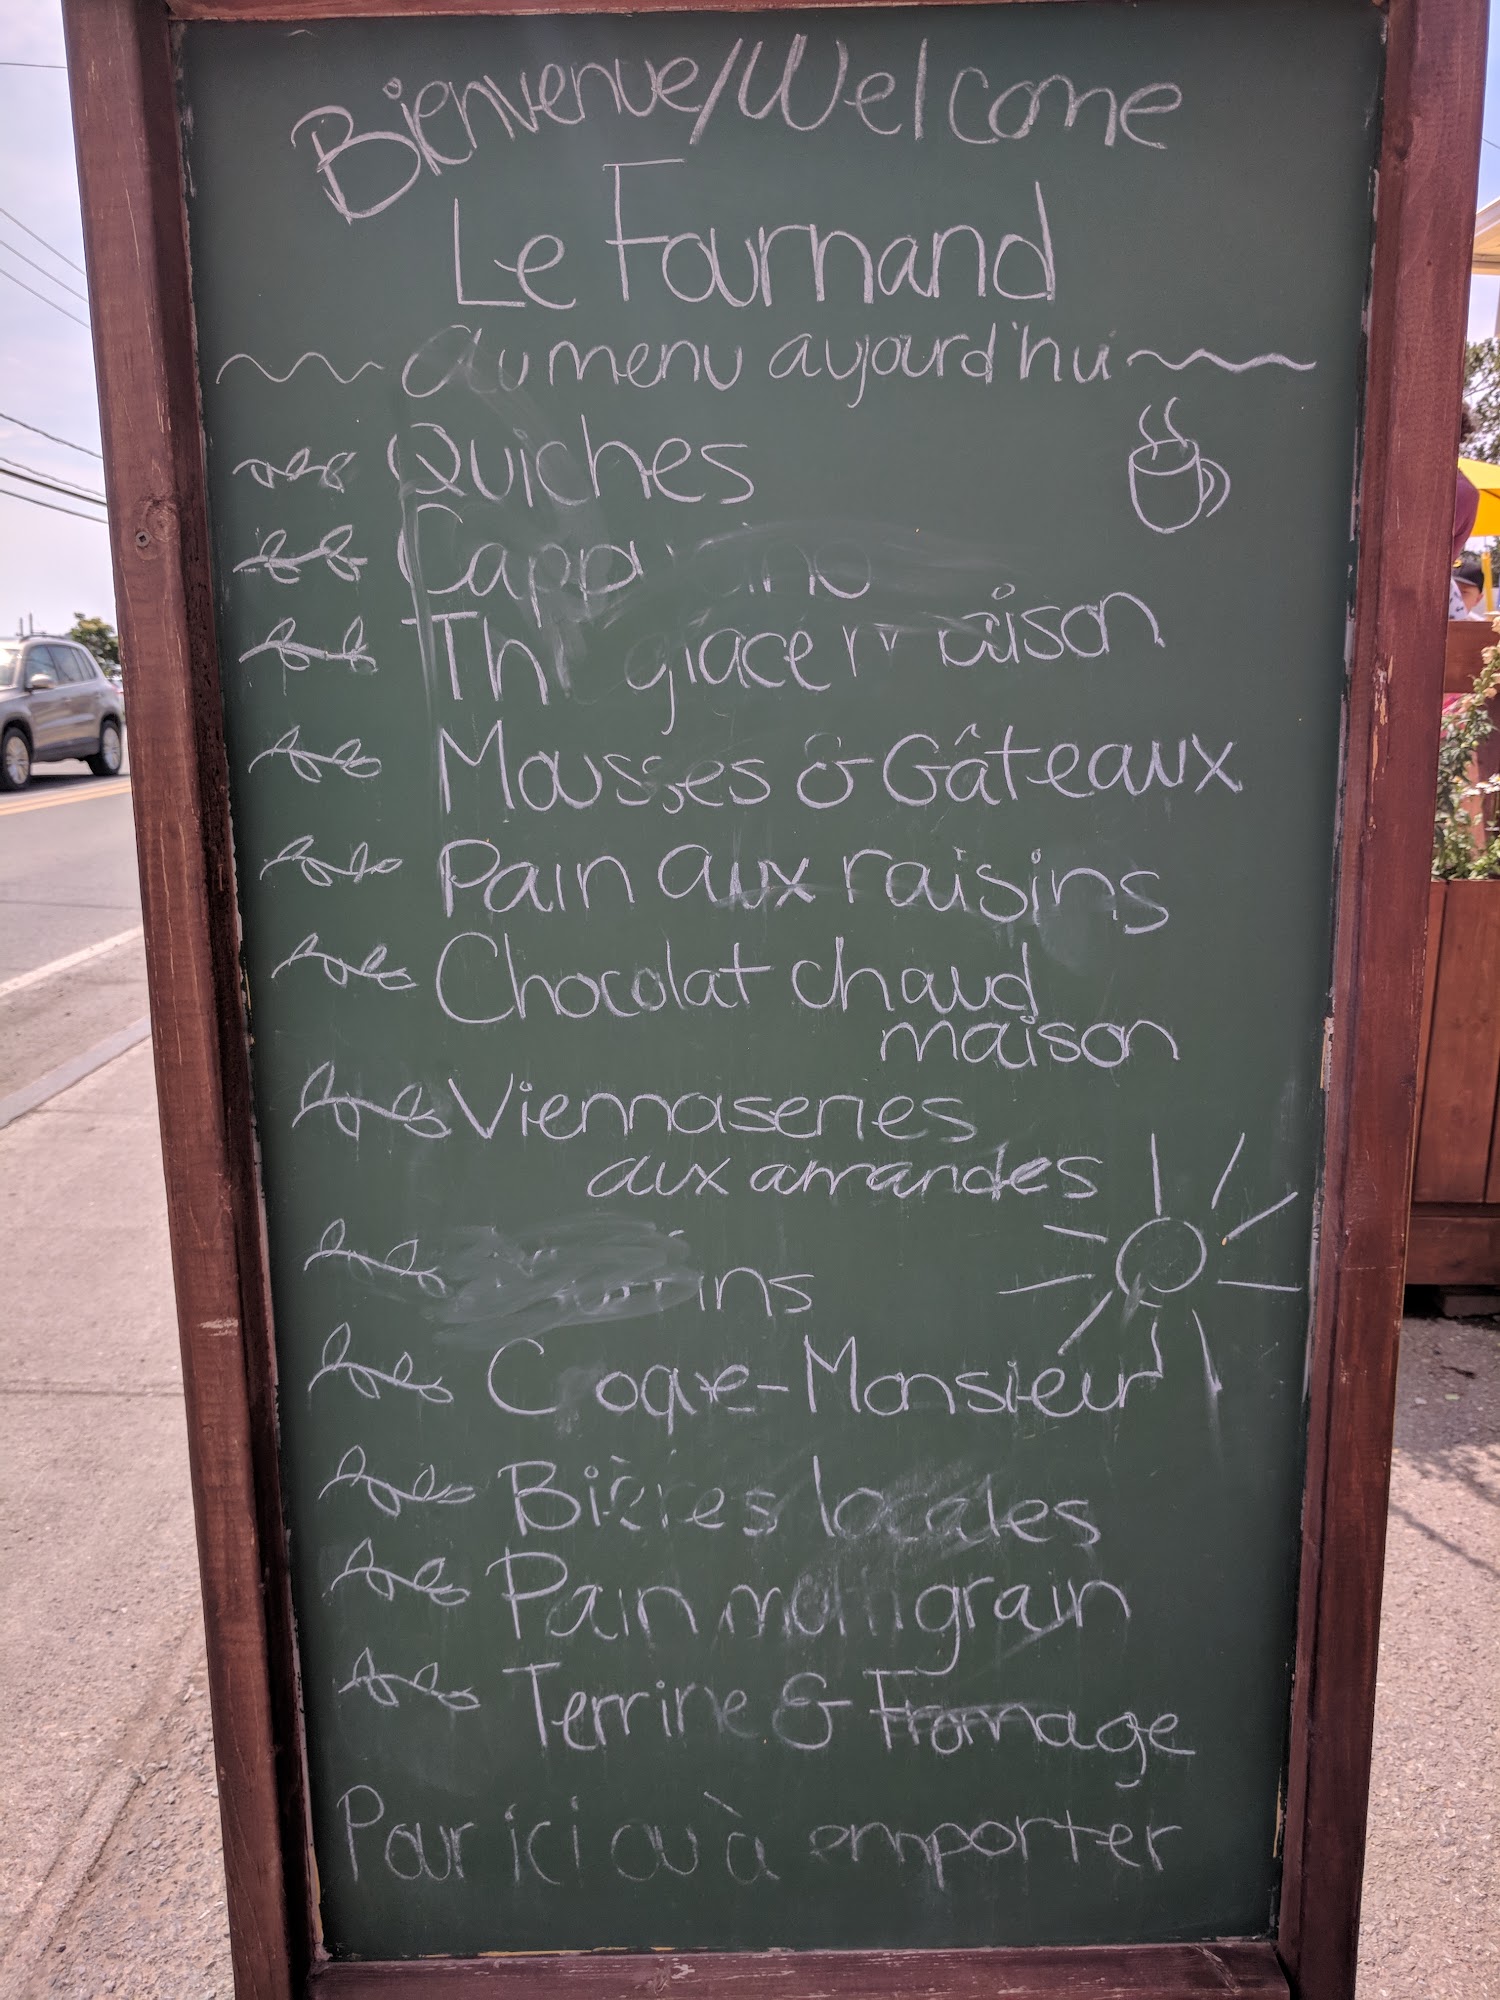 Bienvenue/Welcome
Le Fournand
Au menu aujourd'hui
Quiches
Thé glacé maison
Mousses & Gâteaux
Pain aux raisins
Chocolat chaud
maison
Viennaseries
aux amandes
Croque-Monsieur
Bières locales
Pain multigrain
Terrine & Fromage
Pour ici ou à emporter